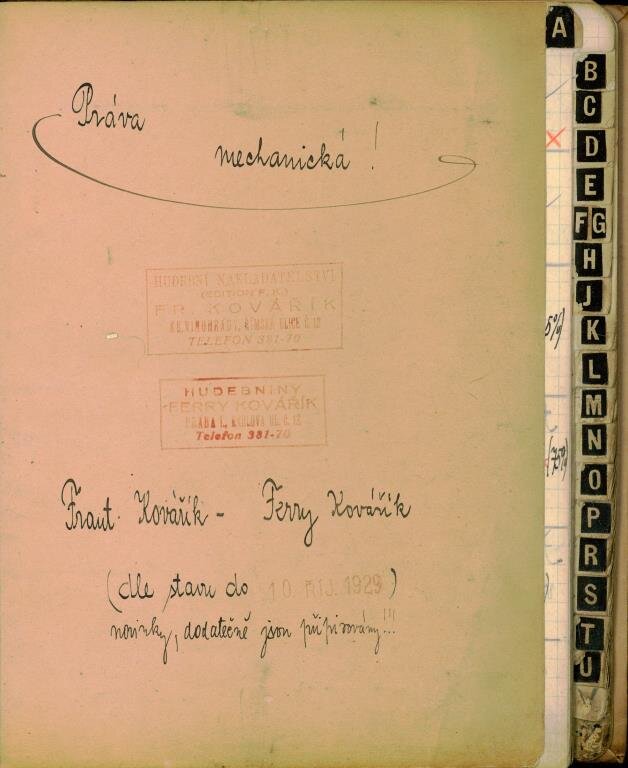 Práva
mechanická!
HUDEBNÍ NAKLADATELSTVÍ
(EDITION F. K.)
FR. KOVÁŘÍK
KR. VINOHRADY, ŘÍMSKÁ ULICE Č. 12
TELEFON 381-70
HUDEBNINY
FERRY KOVÁŘÍK
PRAHA I., KARLOVA UL. Č. 12
Telefon 381-70
Frant. Kovářík - Ferry Kovářík
(dle stavu do 10. ŘÍJ. 1929)
novinky, dodatečně jsou připisovány!!!
A
B
C
D
E
F G
H
J
K
L
M
N
O
P
R
S
T
U
5%)
(75%)